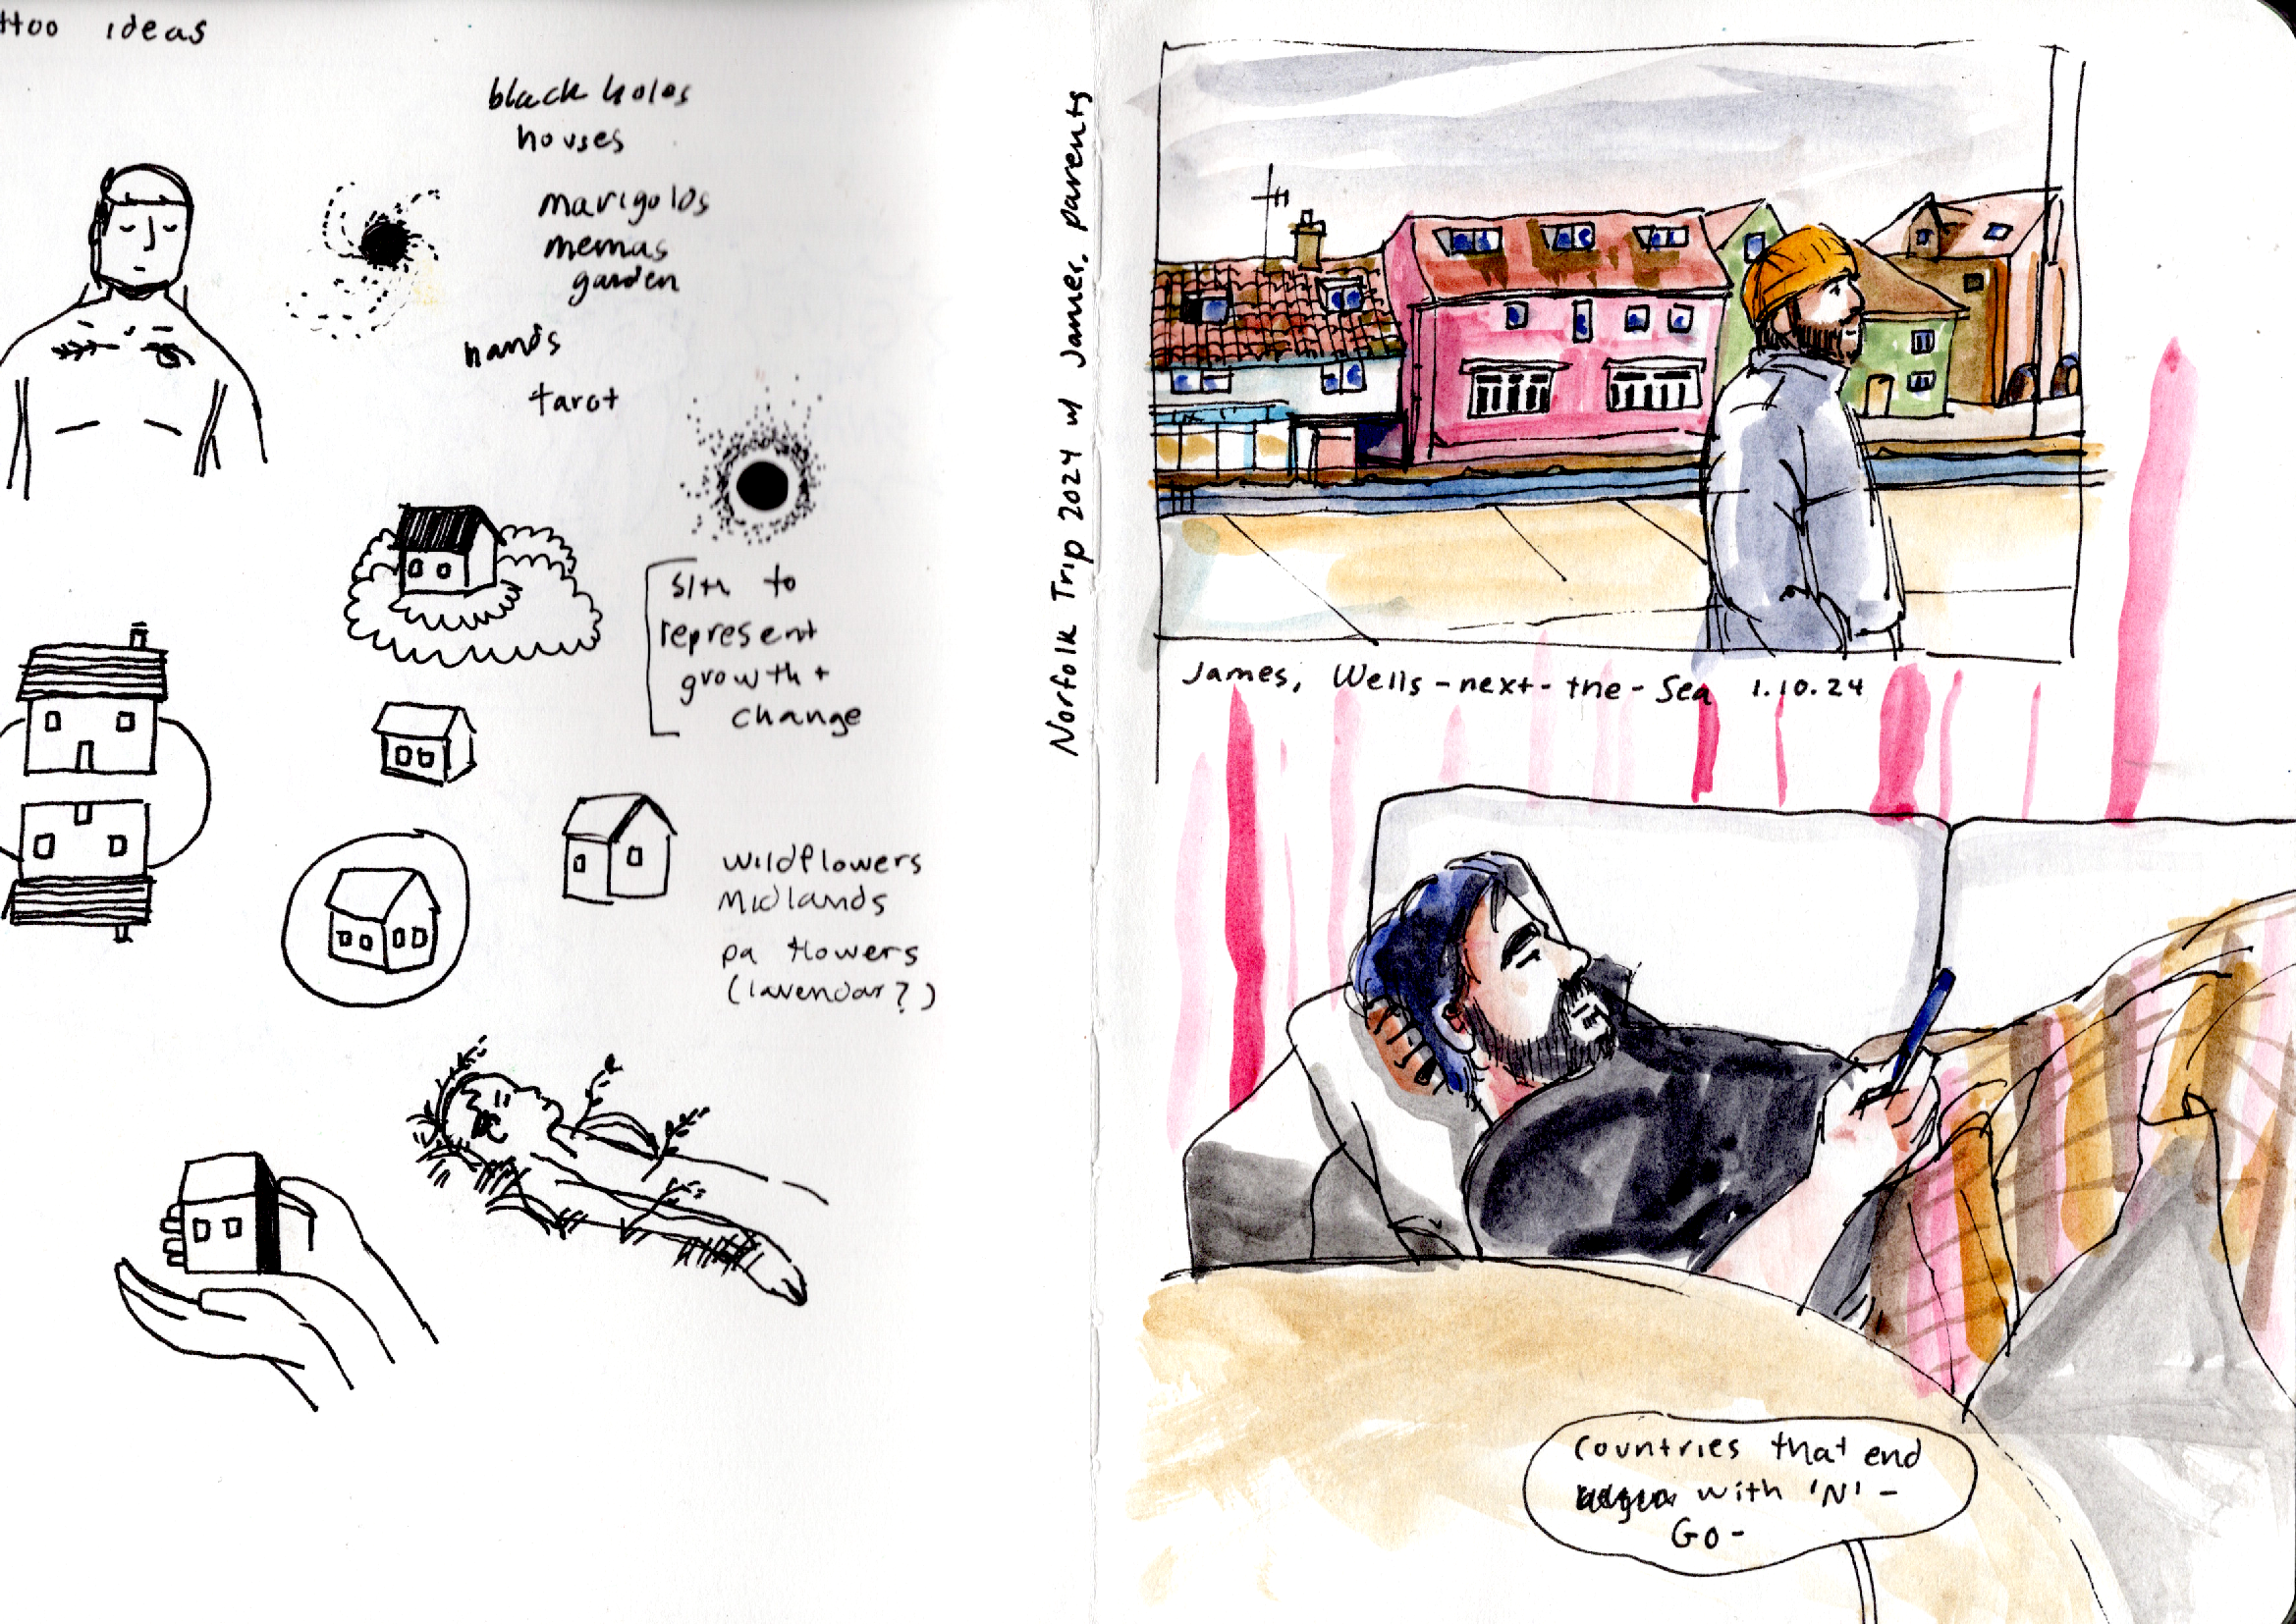 ttoo ideas
black holes
houses
marigolds
memas
garden
hands
tarot
sth to
represent
growth +
change
wildflowers
Midlands
pa flowers
(lavendar?)
Norfolk Trip 2024 w/ James' parents
James, Wells-next-the-Sea 1.10.24
countries that end
with 'N' -
Go-